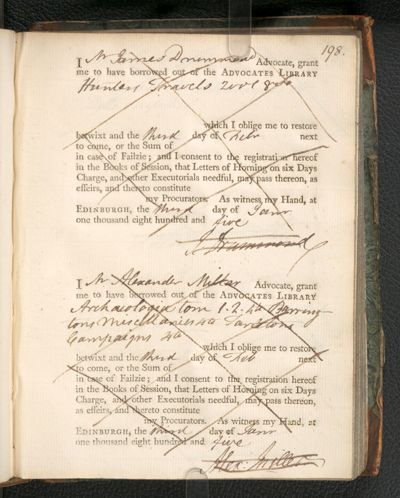 198.
I Mr James Drummond Advocate, grant
me to have borrowed out of the ADVOCATES LIBRARY
Hunters Travels 2 vol 8vo
which I oblige me to restore
betwixt and the third day of Febr next
to come, or the Sum of
in case of Failzie; and I consent to the registration hereof
in the Books of Session, that Letters of Horning on six Days
Charge, and other Executorials needful, may pass thereon, as
effeirs, and thereto constitute
my Procurators. As witness my Hand, at
EDINBURGH, the third day of Janr
one thousand eight hundred and five
J Drummond
I Mr Alexander Millar Advocate, grant
me to have borrowed out of the ADVOCATES LIBRARY
Archaeologia tom 1. 2. 4to Barring-
tons Miscellanies 4to Tarletons
Campaigns 4to
which I oblige me to restore
betwixt and the third day of Feb next
to come, or the Sum of
in case of Failzie; and I consent to the registration hereof
in the Books of Session, that Letters of Horning on six Days
Charge, and other Executorials needful, may pass thereon,
as effeirs, and thereto constitute
my Procurators. As witness my Hand, at
EDINBURGH, the third day of Janr
one thousand eight hundred and five
Alexr Millar